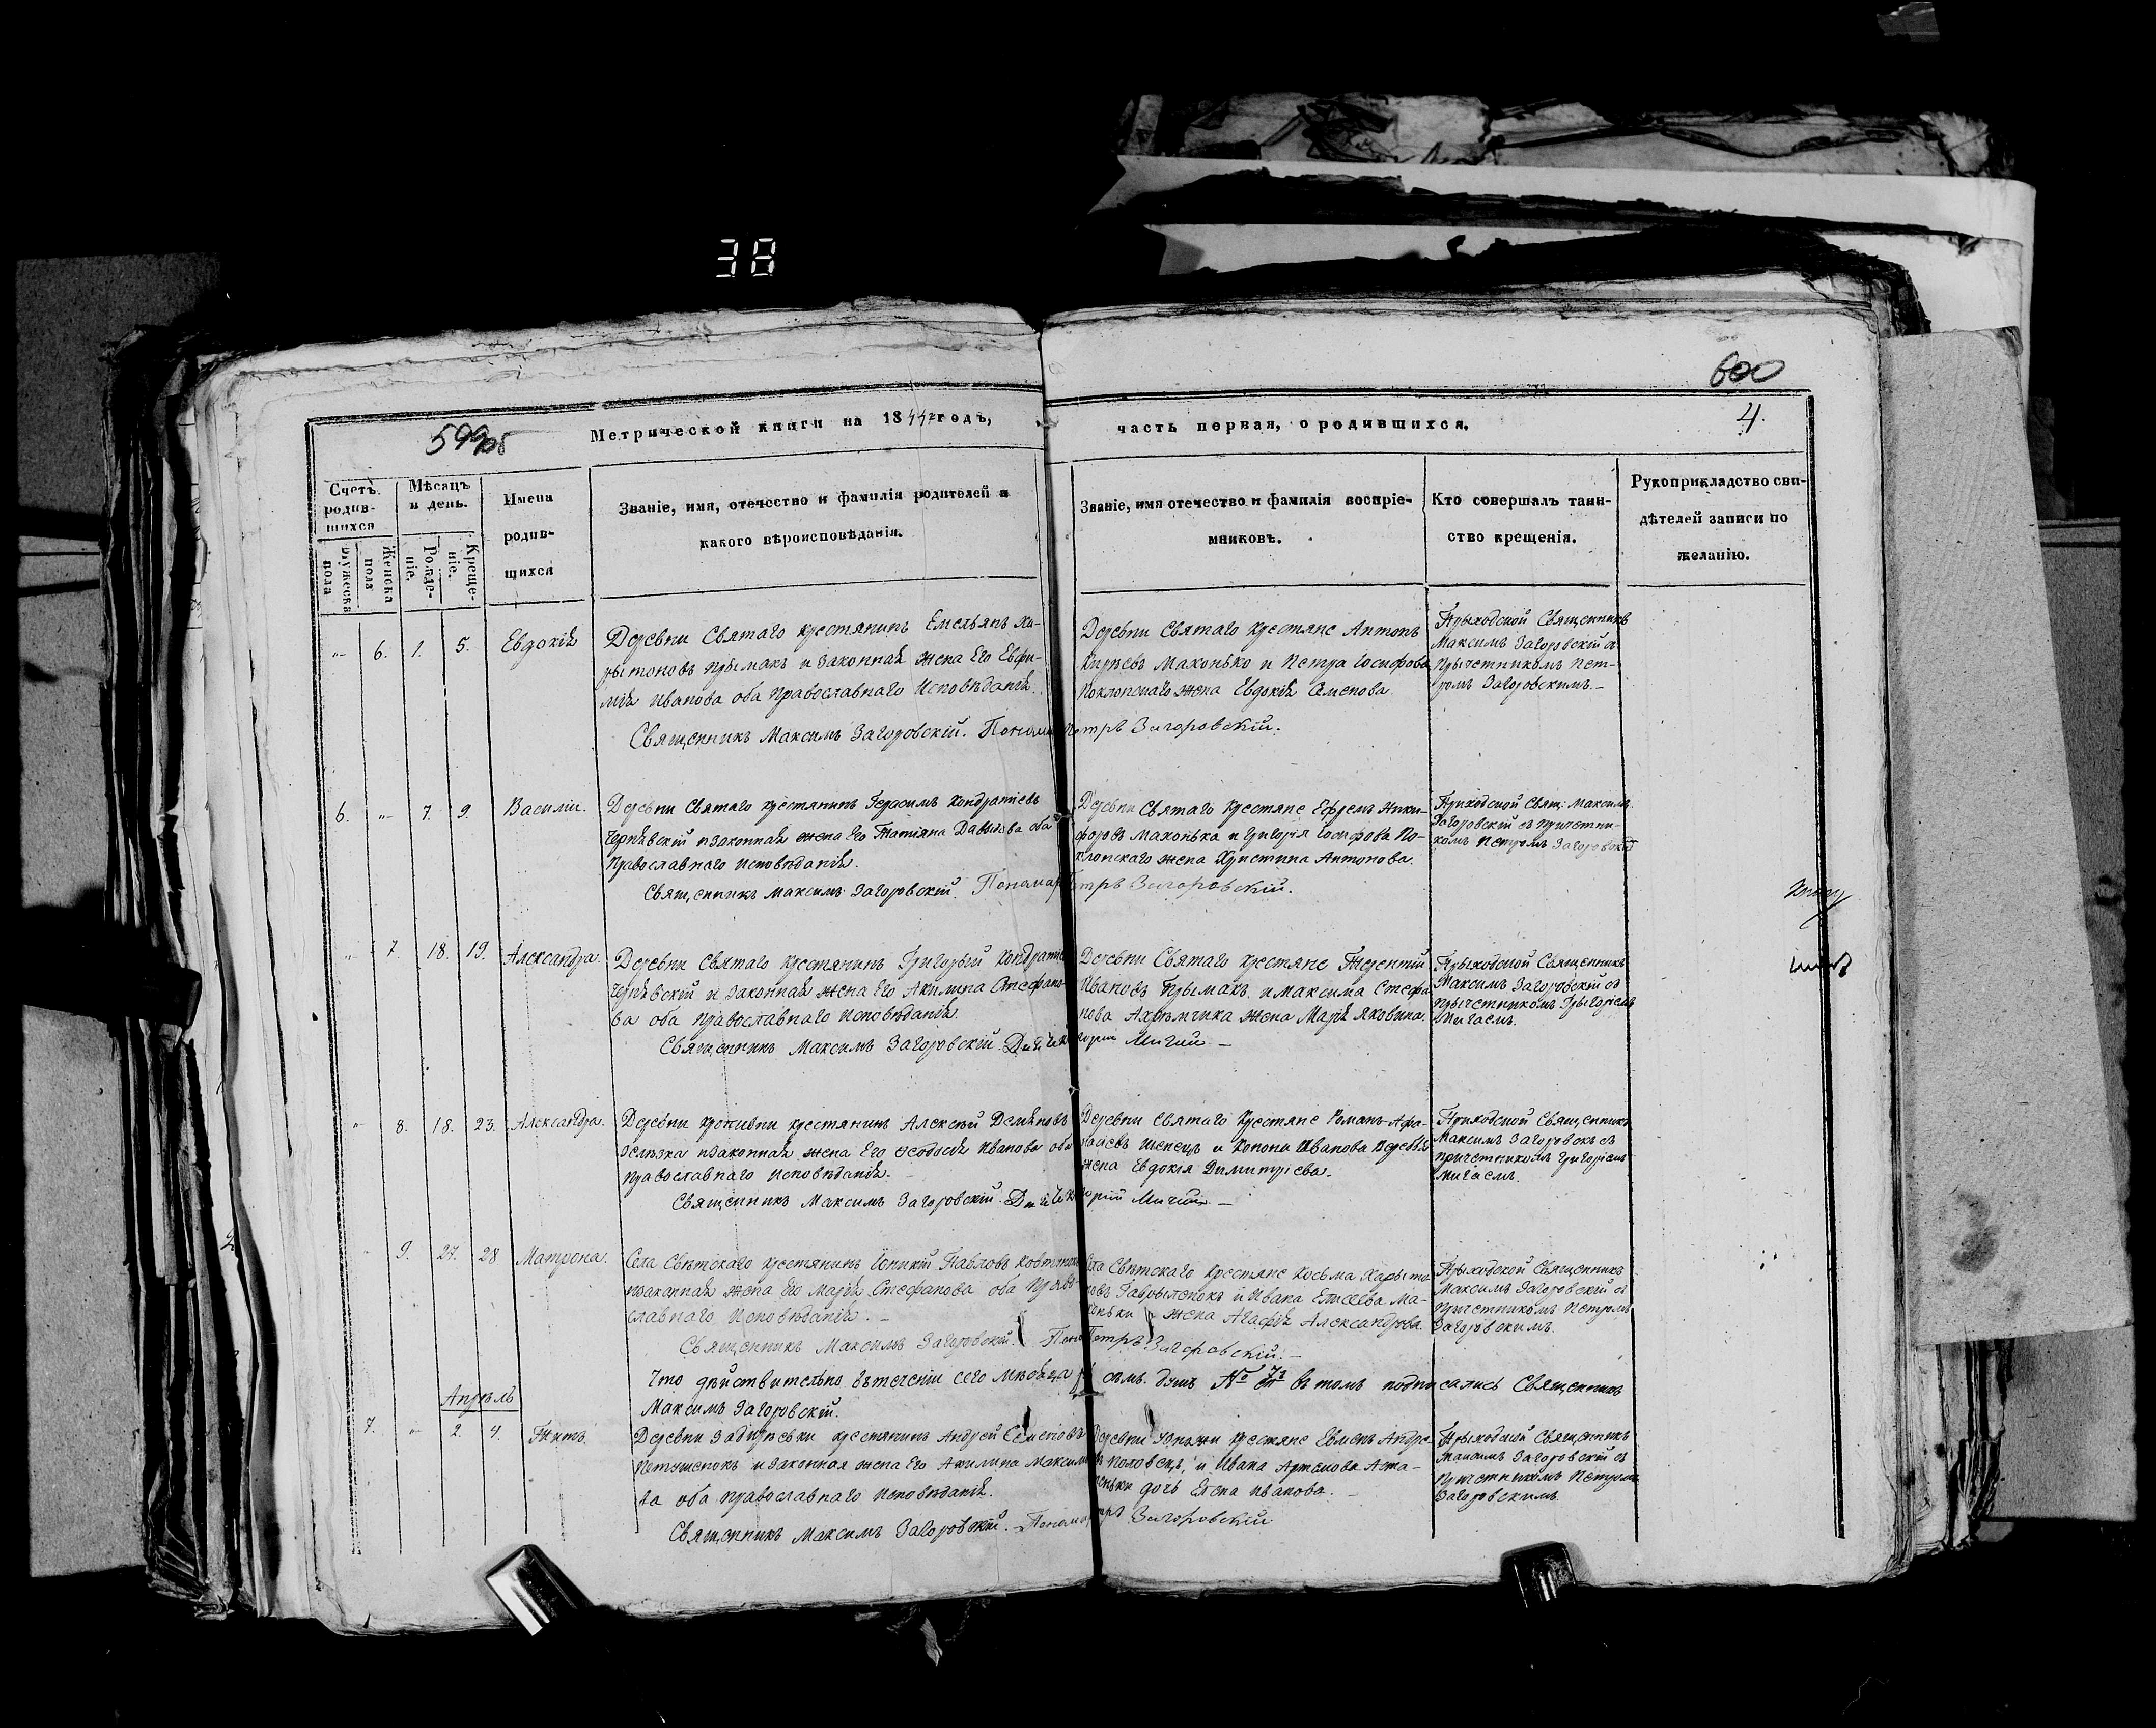 38
600
599 об
Метрической книги на 1844 годъ,
часть первая, о родившихся.
4.
Счетъ родив-
шихся
Мужеска пола
Женска пола
Мѣсяцъ и день.
Рожде-
ніе.
Креще-
ніе.
Имена
родив-
шихся
Званіе, имя, отечество и фамилія родителей и
какого вѣроисповѣданія.
Званіе, имя отечество и фамилія воспріе-
мниковъ.
Кто совершалъ таин-
ство крещенія.
Рукоприкладство сви-
дѣтелей записи по
желанію.
6. 1. 5. Евдокія
Деревни Святаго крестянинъ Емельянъ Ха-
рытоновъ Прымакъ и законная жена Его Евфи-
мія Иванова оба Православнаго Исповѣданія.
Священникъ Максимъ Загоровскій. Понамарь Петръ Загоровскій.
Деревни Святаго крестяне Антонъ
Маконько и Петра Іосифова
Поклонскаго жена Евдокія Семенова
Прыходской Священникъ
Максимъ Загоровскій съ
Прычетникомъ Пет-
ромъ Загоровскимъ.
6. 7. 9. Василій.
Деревни Святаго крестянинъ Герасимъ Кондратіевъ
Чернѣвскій и законная жена Его Татіяна Давыдова оба
Православнаго Исповѣданія.
Священникъ Максимъ Загоровскій. Понамарь Петръ Загоровскій.
Деревни Святаго крестяне Ефремъ Ники-
форовъ Маконька и Григорія Іосифова По-
клонскаго жена Христина Антонова.
Приходской Свящ: Максимъ
Загоровскій съ причетни-
комъ Петромъ Загоровскимъ
7. 18. 19. Александра.
Деревни Святаго крестянинъ Григорый Кондратіевъ
Чернѣвскій и законная жена Его Акилина Стефано-
ва оба Православнаго Исповѣданія.
Священникъ Максимъ Загоровскій. Дьячекъ Григорій Мигай
Деревни Святаго крестяне Терентій
Ивановъ Прымакъ и Максима Стефа-
нова Ахремчика жена Марія Яковлева.
Прыходской Священникъ
Максимъ Загоровскій съ
прычетникомъ Грыгоріемъ
Мигаемъ.
8. 18. 23. Александра.
Деревни крестянинъ Алексѣй Демяновъ
и законная жена Его Ѳеодосія Иванова оба
Православнаго Исповѣданія.
Священникъ Максимъ Загоровскій. Дьячекъ Григорій Мигай
Деревни Святаго крестяне Романъ Афа-
насіевъ Шенецъ и Конона Иванова
жена Евдокія Димитріева.
Приходской Священникъ
Максимъ Загоровскъ съ
причетникомъ Григоріемъ
Мигаемъ.
9. 27. 28 Матрона.
Села Свѣтскаго крестянинъ Іоникій Павловъ
и законная жена Его Марія Стефанова оба Право-
славнаго Исповѣданія.
Священникъ Максимъ Загоровскій. Понамарь Петръ Загоровскій.
Села Свѣтскаго крестяне Косьма Харыто-
новъ Гаврыленокъ и Ивана Елисеева Ма-
коньки жена Агафія Александрова.
Прыходской Священникъ
Максимъ Загоровскій съ
Причетникомъ Петромъ
Загоровскимъ.
Что дѣйствительно втеченіи сего мѣсяца семь душъ № 7й въ томъ подписались Священникъ
Максимъ Загоровскій.
Апрѣль
7. 2. 4. Титъ.
Деревни крестянинъ Андрей Семеновъ
Петюшенокъ и законная жена Его Акилина Максимо-
ва оба Православнаго Исповѣданія.
Священникъ Максимъ Загоровскій. Понамарь Петръ Загоровскій
Деревни крестяне Евменъ Андре-
евъ Половецъ, и Ивана Артемова
дочь Елена Иванова.
Прыходской Священникъ
Максимъ Загоровскій съ
Причетникомъ Петромъ
Загоровскимъ.